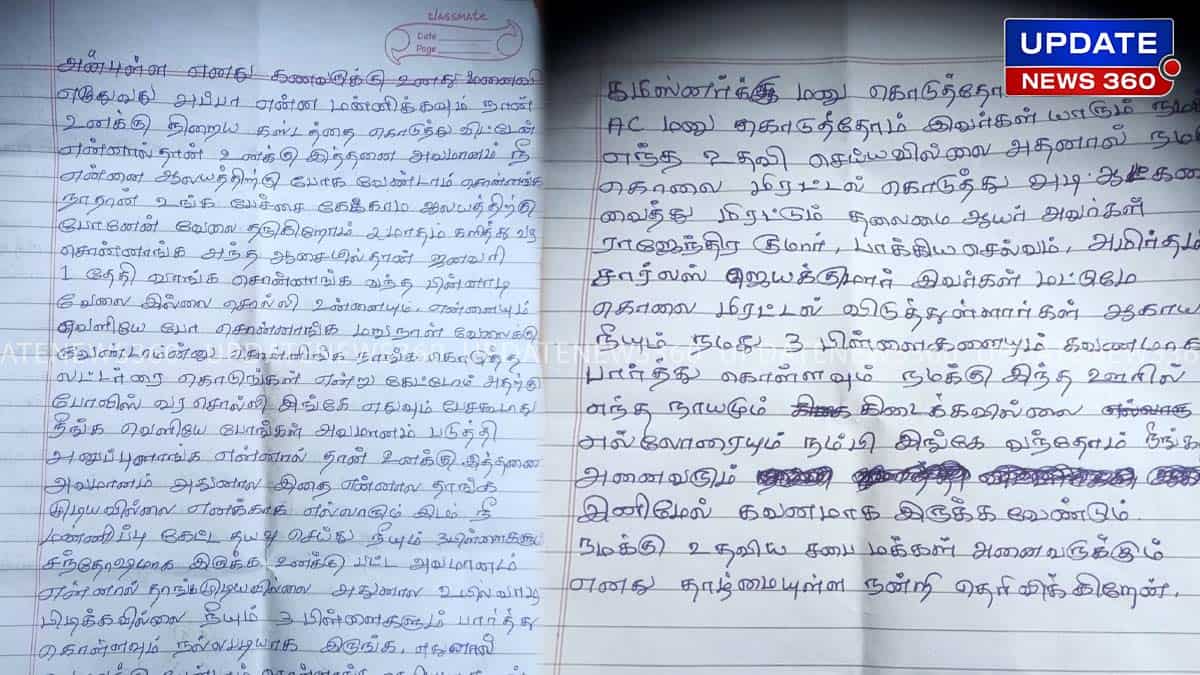 classmate
Date
Page
அன்புள்ள எனது கணவருக்கு உனது மனைவி
எழுதுவது அப்பா என்ன மன்னிக்கவும் நான்
உனக்கு நிறைய கஸ்டத்தை கொடுத்து விட்டேன்
என்னால்தான் உனக்கு இத்தனை அவமானம் நீ
என்னை ஆலயத்திற்கு போக வேண்டாம் சொன்னங்க
நாதான் உங்க பேச்சை கேக்காம ஆலயத்திற்கு
போனேன் வேலை தருகிறோம் 2 மாதம் கழித்து வர
சொன்னாங்க அந்த ஆசையில்தான் ஜனவரி
1 தேதி வாங்க சொன்னாங்க வந்த பின்னாடி
வேலை இல்லை சொல்லி உன்னையும், என்னையும்
வெளியே போ சொன்னாங்க மறுநாள் வேலைக்கு
வேண்டாமன்னு சொன்னிங்க நாங்க கொடுத்த
லட்டர்ரை கொடுங்கள் என்று கேட்டோம் அதற்கு
போலிஸ் வர சொல்லி அங்கே எதுவும் பேசகூடாது
நீங்க வெளியே போங்கள் அவமானம் படுத்தி
அனுப்புனாங்க என்னால் தான் உனக்கு இத்தனை
அவமானம் அதுனால இதை என்னால தாங்க
முடியவில்லை எனக்காக எல்லாரும் இடம் நீ
மன்னிப்பு கேட்ட தயவு செய்து நீயும் 3 பிள்ளைகளும்
சந்தோஷமாக இருக்க உனக்கு பட்ட அவமானம்
என்னால் தாங்கமுடியவில்லை அதுனால உயிர்வாழ
பிடிக்கவில்லை நீயும் 3 பிள்ளைகளும் பார்த்து
கொள்ளவும் நல்லபடியாக இருங்க, எதுனால்
கமிஸ்னர்க்கு மனு கொடுத்தோ
AC மனு கொடுத்தோம் இவர்கள் யாரும் நம
எந்த உதவி செய்யவில்லை அதனால் நம
கொலை மிரட்டல் கொடுத்து அடி ஆட்கள
வைத்து மிரட்டும் தலைமை ஆயர் அவர்கள்
ராஜேந்திர குமார், பாக்கிய செல்வம், அமிர்தம்
சார்லஸ் ஜெயக்குமார் இவர்கள் மட்டுமே
கொலை மிரட்டல் விடுத்துள்ளார்கள் ஆகாய
நீயும் நமது 3 பிள்ளைகளையும் கவணமாக
பார்த்து கொள்ளவும் நமக்கு இந்த ஊரில்
எந்த நாயமும் கிடைக்கவில்லை
எல்லோரையும் நம்பி இங்கே வந்தோம் நீங்க
அனைவரும்
இனிமேல் கவணமாக இருக்க வேண்டும்.
நமக்கு உதவிய சபை மக்கள் அனைவருக்கும்
எனது தாழ்மையுள்ள நன்றி தெரிவிக்கிறேன்.
UPDATE
NEWS 360
UPDATENEWS360